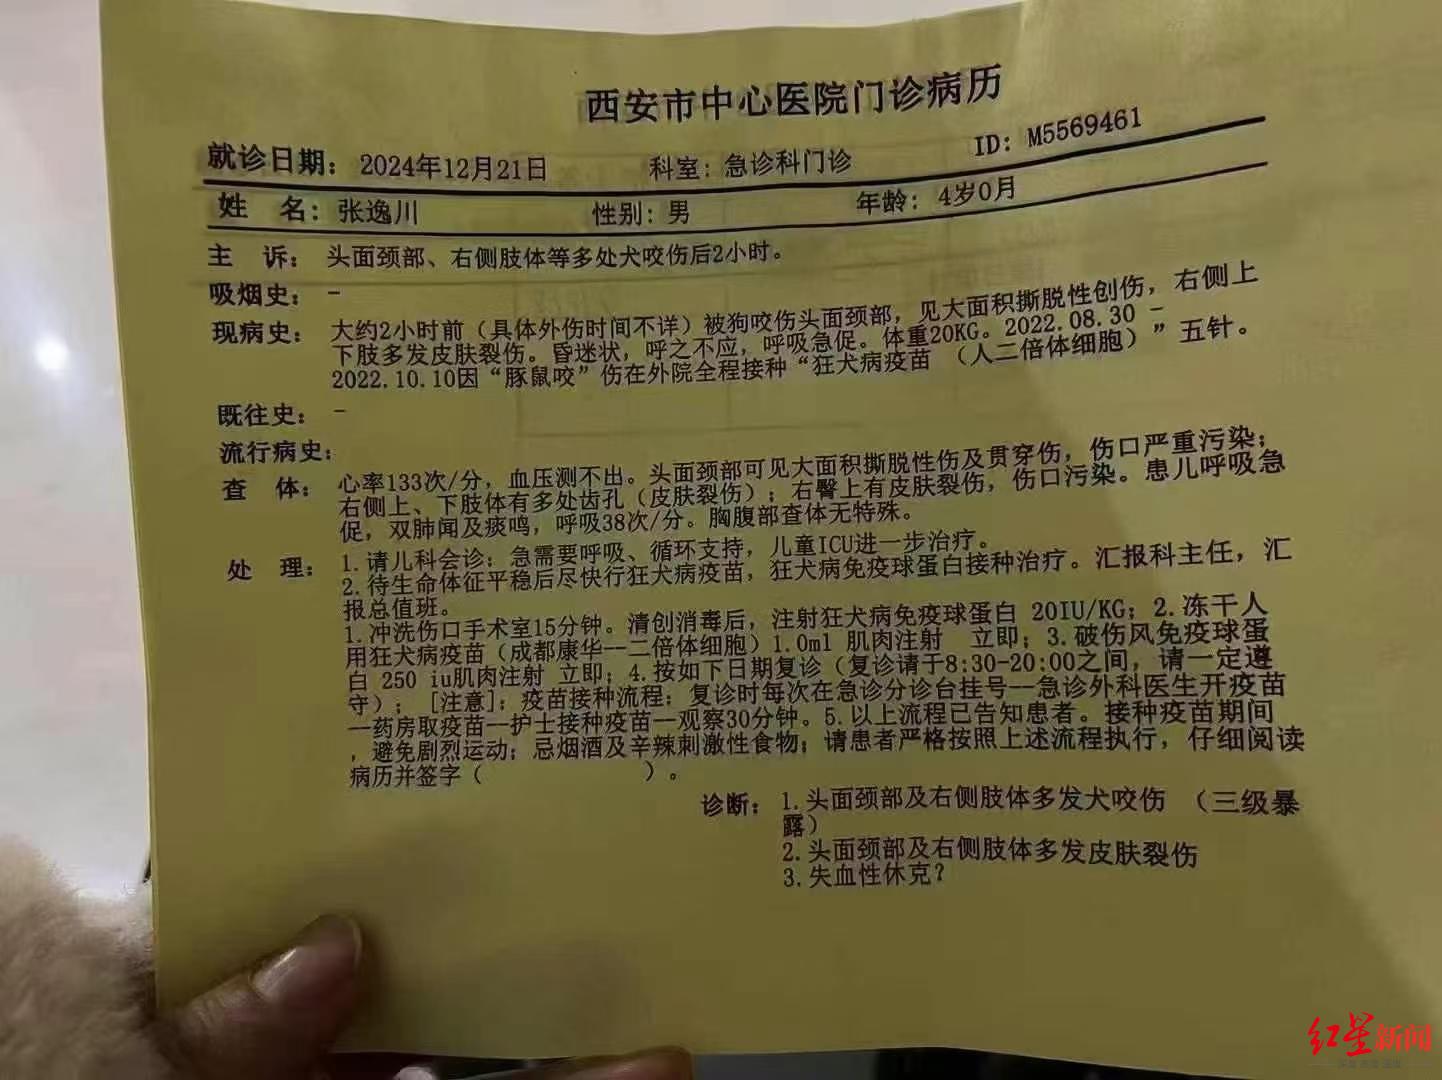 西安市中心医院门诊病历
就诊日期：2024年12月21日 科室：急诊科门诊 ID：M5569461
姓 名：张逸川 性别：男 年龄：4岁0月
主 诉：头面颈部、右侧肢体等多处犬咬伤后2小时。
吸烟史：-
现病史：大约2小时前（具体外伤时间不详）被狗咬伤头面颈部，见大面积撕脱性创伤，右侧上
下肢多发皮肤裂伤。昏迷状，呼之不应，呼吸急促。体重20KG。2022.08.30 -
2022.10.10因“豚鼠咬”伤在外院全程接种“狂犬病疫苗 （人二倍体细胞）”五针。
既往史：-
流行病史：
查 体：心率133次/分，血压测不出。头面颈部可见大面积撕脱性伤及贯穿伤，伤口严重污染；
右侧上、下肢体有多处齿孔（皮肤裂伤）；右臀上有皮肤裂伤，伤口污染。患儿呼吸急
促，双肺闻及痰鸣，呼吸38次/分。胸腹部查体无特殊。
处 理：1.请儿科会诊：急需要呼吸、循环支持，儿童ICU进一步治疗。
2.待生命体征平稳后尽快行狂犬病疫苗，狂犬病免疫球蛋白接种治疗。汇报科主任，汇
报总值班。
1.冲洗伤口手术室15分钟。清创消毒后，注射狂犬病免疫球蛋白 20IU/KG；2.冻干人
用狂犬病疫苗（成都康华--二倍体细胞）1.0ml 肌肉注射 立即；3.破伤风免疫球蛋
白 250 iu肌肉注射 立即；4.按如下日期复诊（复诊请于8:30-20:00之间，请一定遵
守）； [注意]：疫苗接种流程：复诊时每次在急诊分诊台挂号--急诊外科医生开疫苗
—药房取疫苗—护士接种疫苗—观察30分钟。5.以上流程已告知患者。接种疫苗期间
，避免剧烈运动；忌烟酒及辛辣刺激性食物；请患者严格按照上述流程执行，仔细阅读
病历并签字（ ）。
诊断：1.头面颈部及右侧肢体多发犬咬伤 （三级暴
露）
2.头面颈部及右侧肢体多发皮肤裂伤
3.失血性休克？
红星新闻